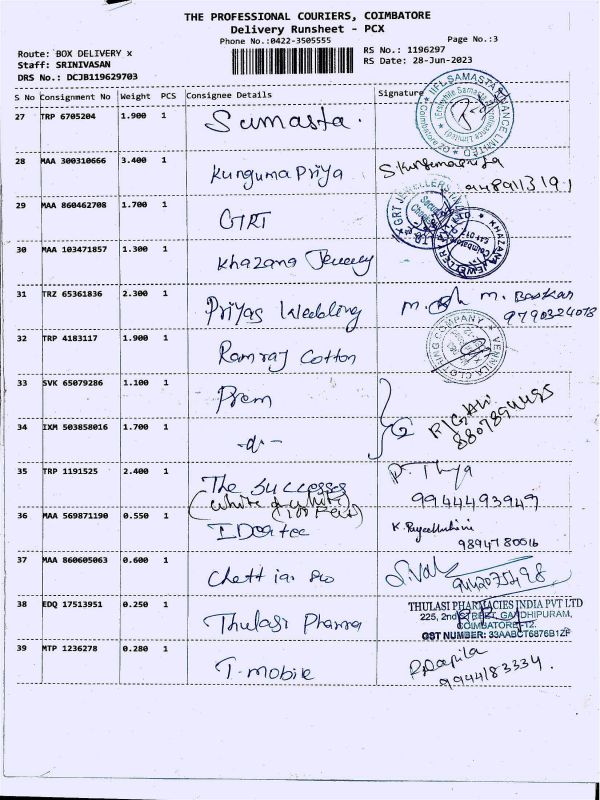 THE PROFESSIONAL COURIERS, COIMBATORE
Delivery Runsheet - PCX
Phone No.:0422-3505555 Page No.:3
Route: BOX DELIVERY x RS No.: 1196297
Staff: SRINIVASAN RS Date: 28-Jun-2023
DRS No.: DCJB119629703
S No Consignment No Weight PCS Consignee Details Signature
27 TRP 6705204 1.900 1 Sumasta.
28 MAA 300310666 3.400 1 Kunguma Priya
29 MAA 860462708 1.700 1 GRT
30 MAA 103471857 1.300 1 Khazana Jewelly
31 TRZ 65361836 2.300 1 Priyas Wedding M. Baskar
9790324078
32 TRP 4183117 1.900 1 Ramraj Cotton
VENMILA CLOTHING COMPANY
33 SVK 65079286 1.100 1 Prem
8807894495
34 IXM 503858016 1.700 1 -do-
35 TRP 1191525 2.400 1 The Successes
9944493947
36 MAA 569871190 0.550 1
9894780016
37 MAA 860605063 0.600 1
9442075498
38 EDQ 17513951 0.250 1 Thulasi Pharma
THULASI PHARMACIES INDIA PVT LTD
225, 2nd STREET, GANDHIPURAM,
COIMBATORE-12.
GST NUMBER: 33AABCT6876B1ZF
39 MTP 1236278 0.280 1 T-mobile
9944183334.